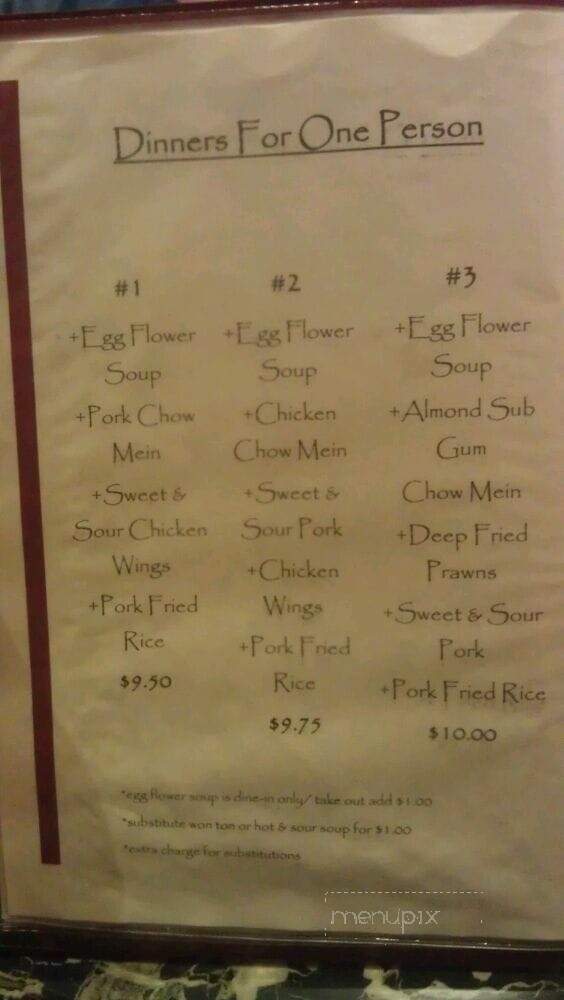 Dinners For One Person
#1
+Egg Flower
Soup
+Pork Chow
Mein
+Sweet &
Sour Chicken
Wings
+Pork Fried
Rice
$9.50
#2
+Egg Flower
Soup
+Chicken
Chow Mein
+Sweet &
Sour Pork
+Chicken
Wings
+Pork Fried
Rice
$9.75
#3
+Egg Flower
Soup
+Almond Sub
Gum
Chow Mein
+Deep Fried
Prawns
+Sweet & Sour
Pork
+Pork Fried Rice
$10.00
*egg flower soup is dine-in only/ take out add $1.00
*substitute won ton or hot & sour soup for $1.00
*extra charge for substitutions
menupix